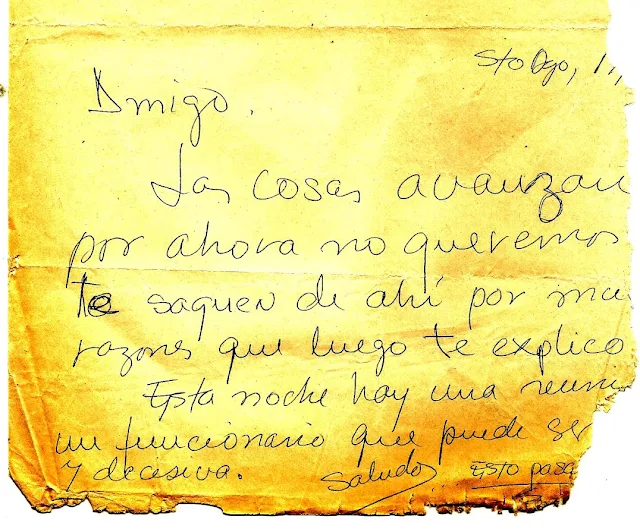 Stgo,
Amigo.
Las cosas avanzan
por ahora no queremos
te saquen de ahí por
razones que luego te explico
Esta noche hay una
un funcionario que puede ser
y decesiva.
Saludos Esto pasa